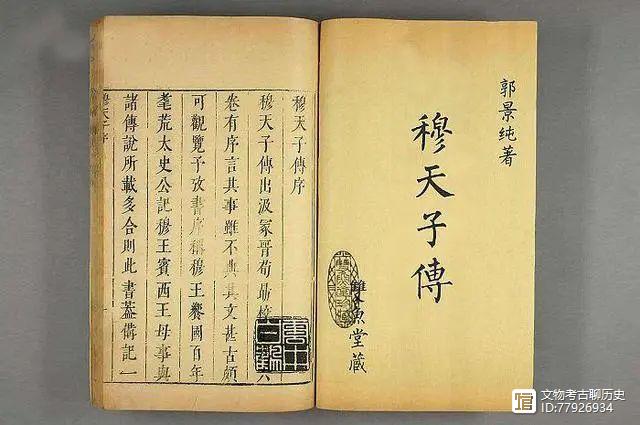 郭景纯著
穆天子傳
雙魚堂藏
穆天子傳序
穆天子傳出汲冢晉荀勗校六
卷有序言其事雖不典其文甚古頗
可觀覽予攷書序稱穆王饗國百年
耄荒太史公記穆王賓西王母事與
諸傳說所載多合則此書葢備記一
穆天子序
文物考古聊历史
ID:77926934